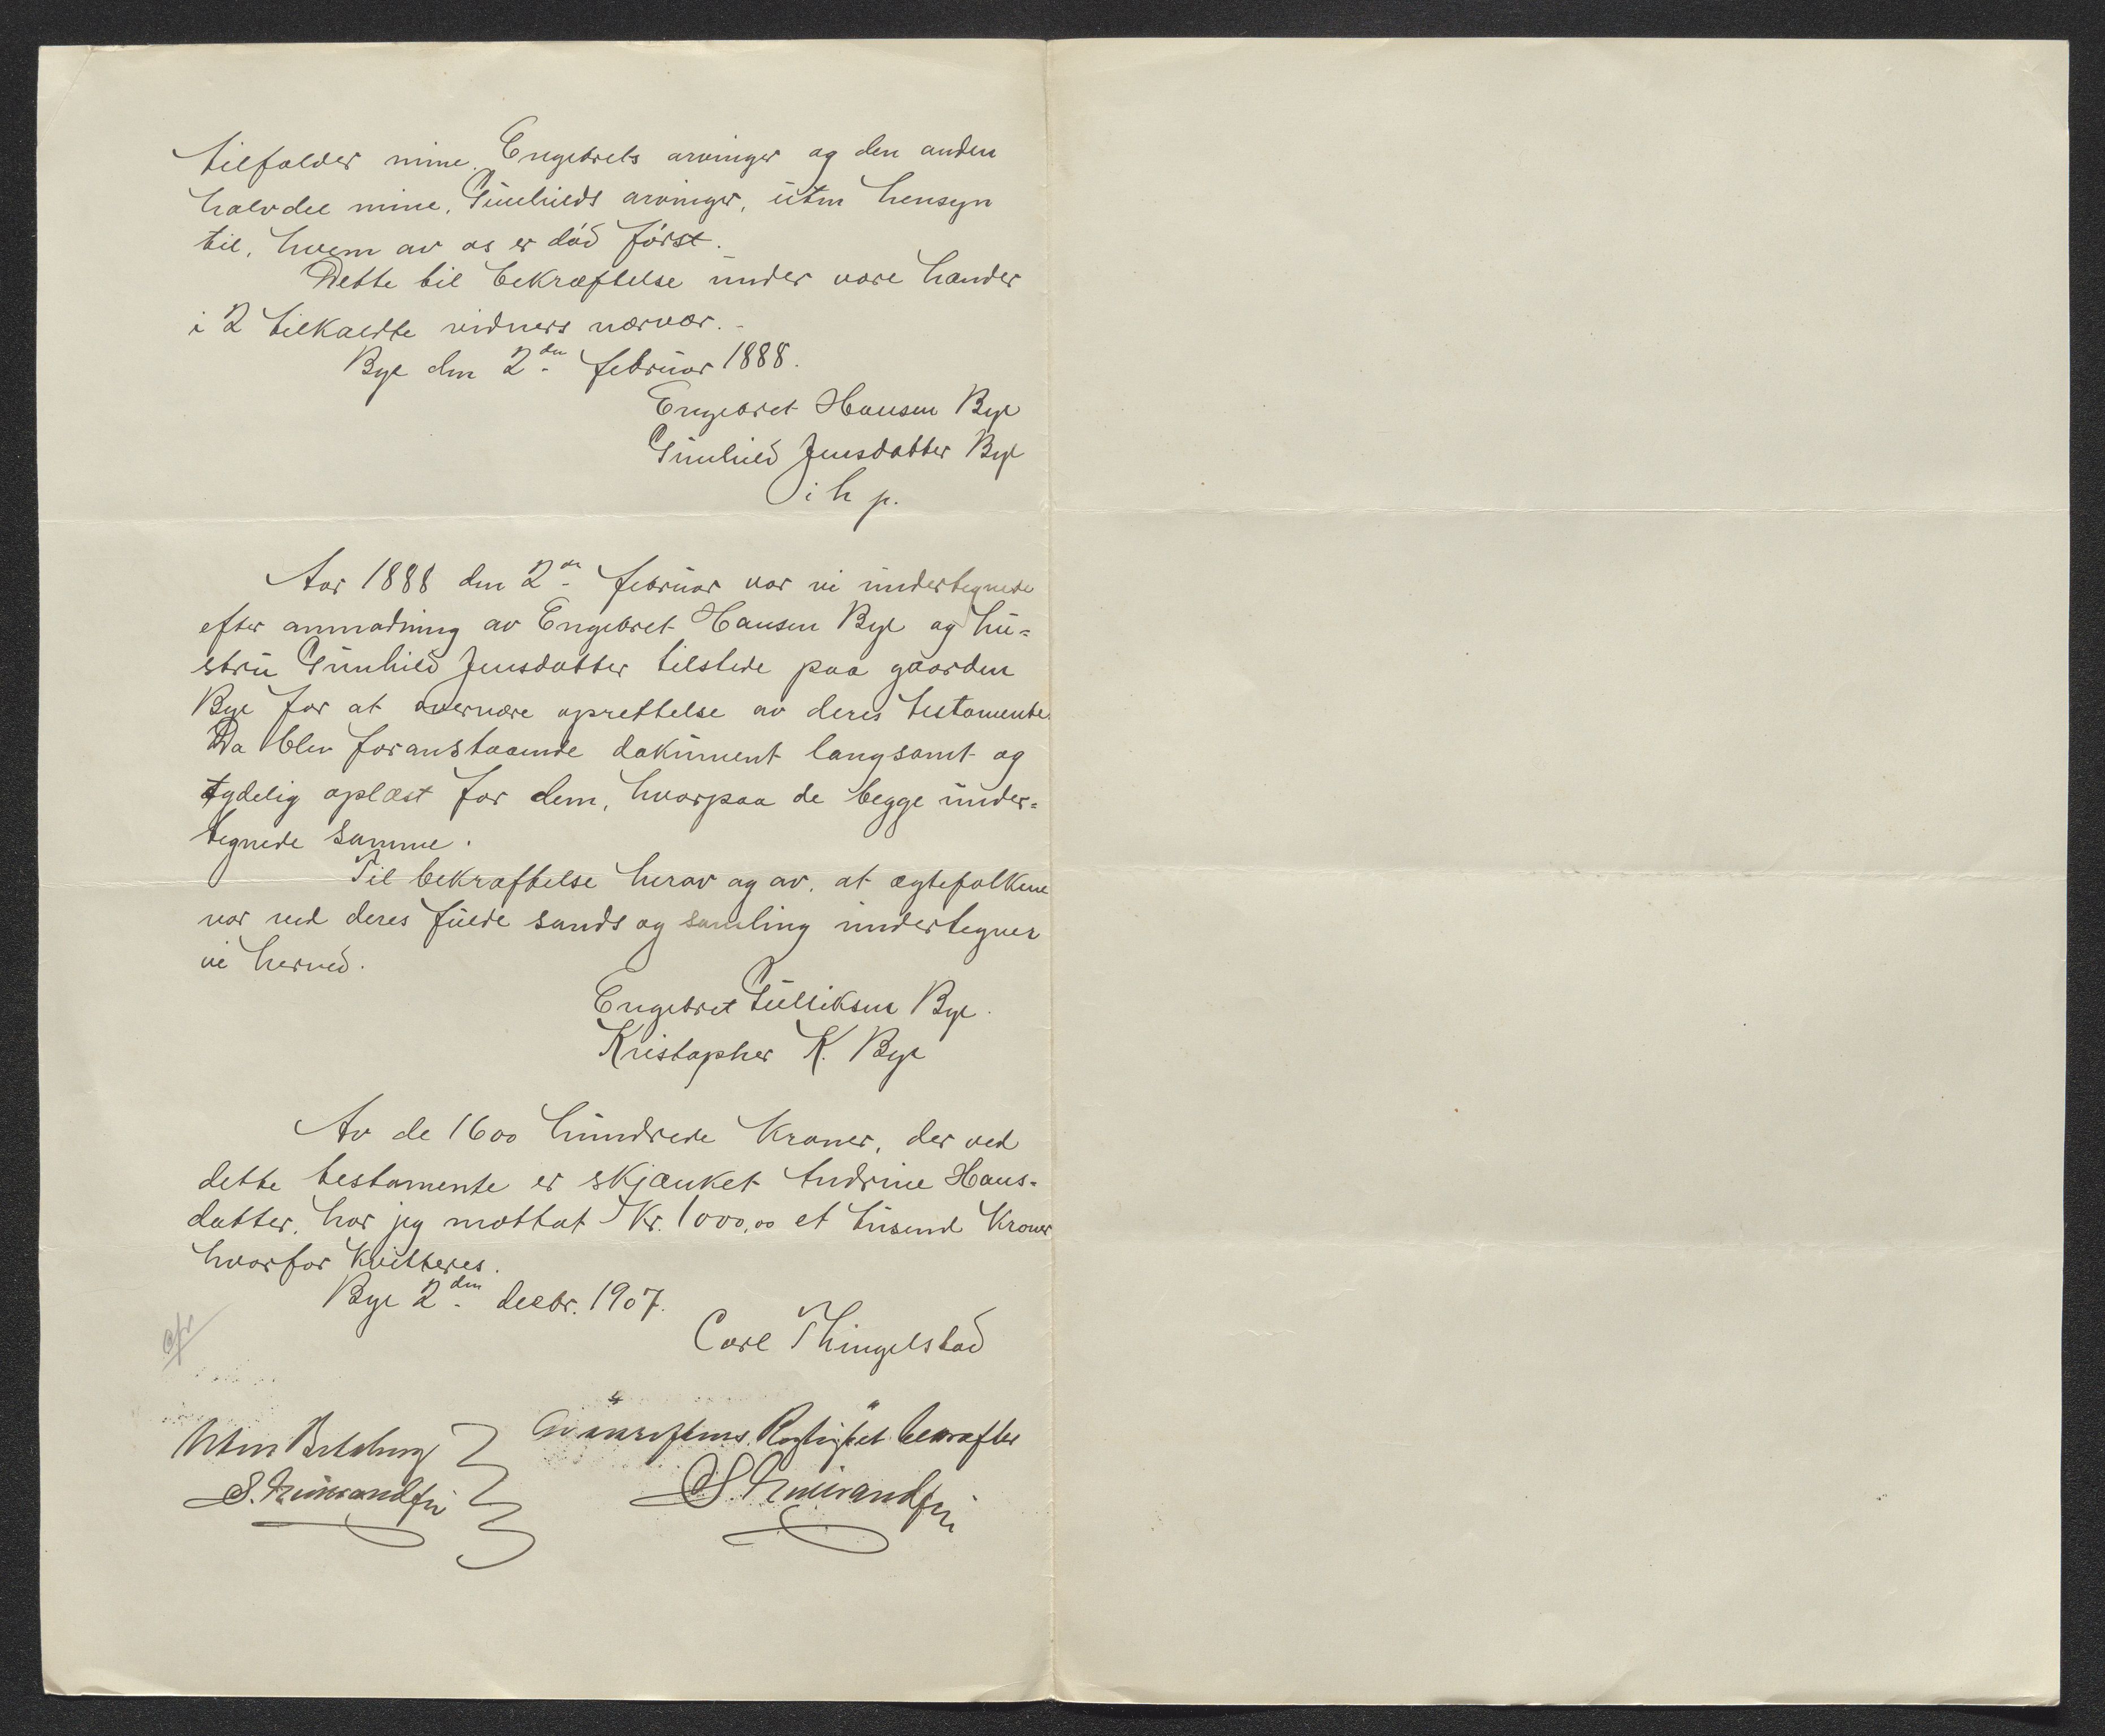 tilfalder mine, Engebrets arvinger og den anden
halvdel mine, Gunhilds arvinger, uten hensyn
til, hvem av os er död först.
Dette til bekræftelse under vore hænder
i 2 tilkaldte vidners nærvær.
Bye den 2den februar 1888.
Engebret Hansen Bye
Gunhild Jensdatter Bye
i h p.
Aar 1888 den 2den februar var vi undertegnede
efter anmodning av Engebret Hansen Bye og hu=
stru Gunhild Jensdatter tilstede paa gaarden
Bye for at overvære oprettelse av deres testamente.
Da blev foranstaaende dokument langsomt og
tydelig oplæst for dem, hvorpaa de begge under=
tegnede samme.
Til bekræftelse herav og av, at ægtefolkene
var ved deres fulde sands og samling undertegner
vi herved.
Engebret Gulliksen Bye.
Kristopher K. Bye
Av de 1600 hundrede kroner, der ved
dette testamente er skjænket Andrine Hans=
datter, har jeg mottat Kr. 1000,00 et tusend kroner
hvorfor kvitteres.
Bye 2den decbr. 1907.
Carl Thingelstad
Uten Betaling
Avskriftens Rigtighet bekræfter